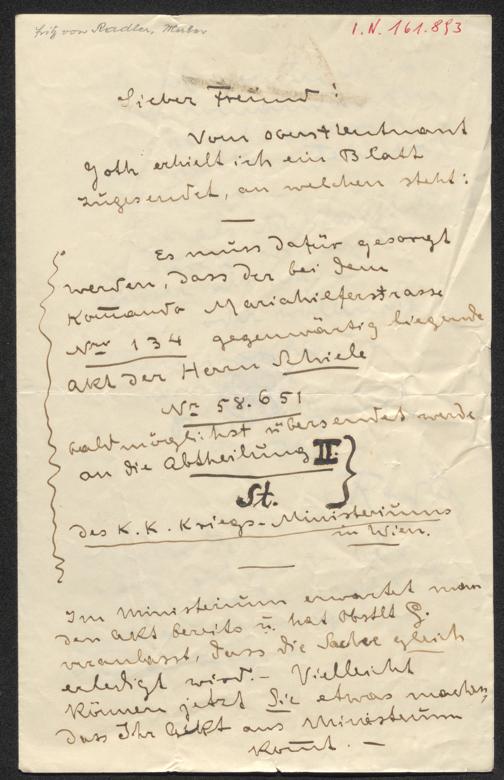 Fritz von Radler, Maler
I.N. 161.893
Lieber Freund!
Vom Oberstleutnant
Goth erhielt ich ein Blatt
zugesendet, an welchen steht:
—
Es muss dafür gesorgt
werden, dass der bei dem
Komando Mariahilferstrasse
Nro 134 gegenwärtig liegende
Akt der Herrn Schiele
No 58.651
baldmöglichst übersendet werde
an die Abtheilung II.
St.
des K. K. Kriegs-Ministeriums
in Wien.
—
Im Ministerium erwartet man
den Akt bereits u. hat Obstlt G.
veranlasst, dass die Sache gleich
erledigt wird. – Vielleicht
können jetzt Sie etwas machen,
dass Ihr Akt ans Ministerium
komt. —